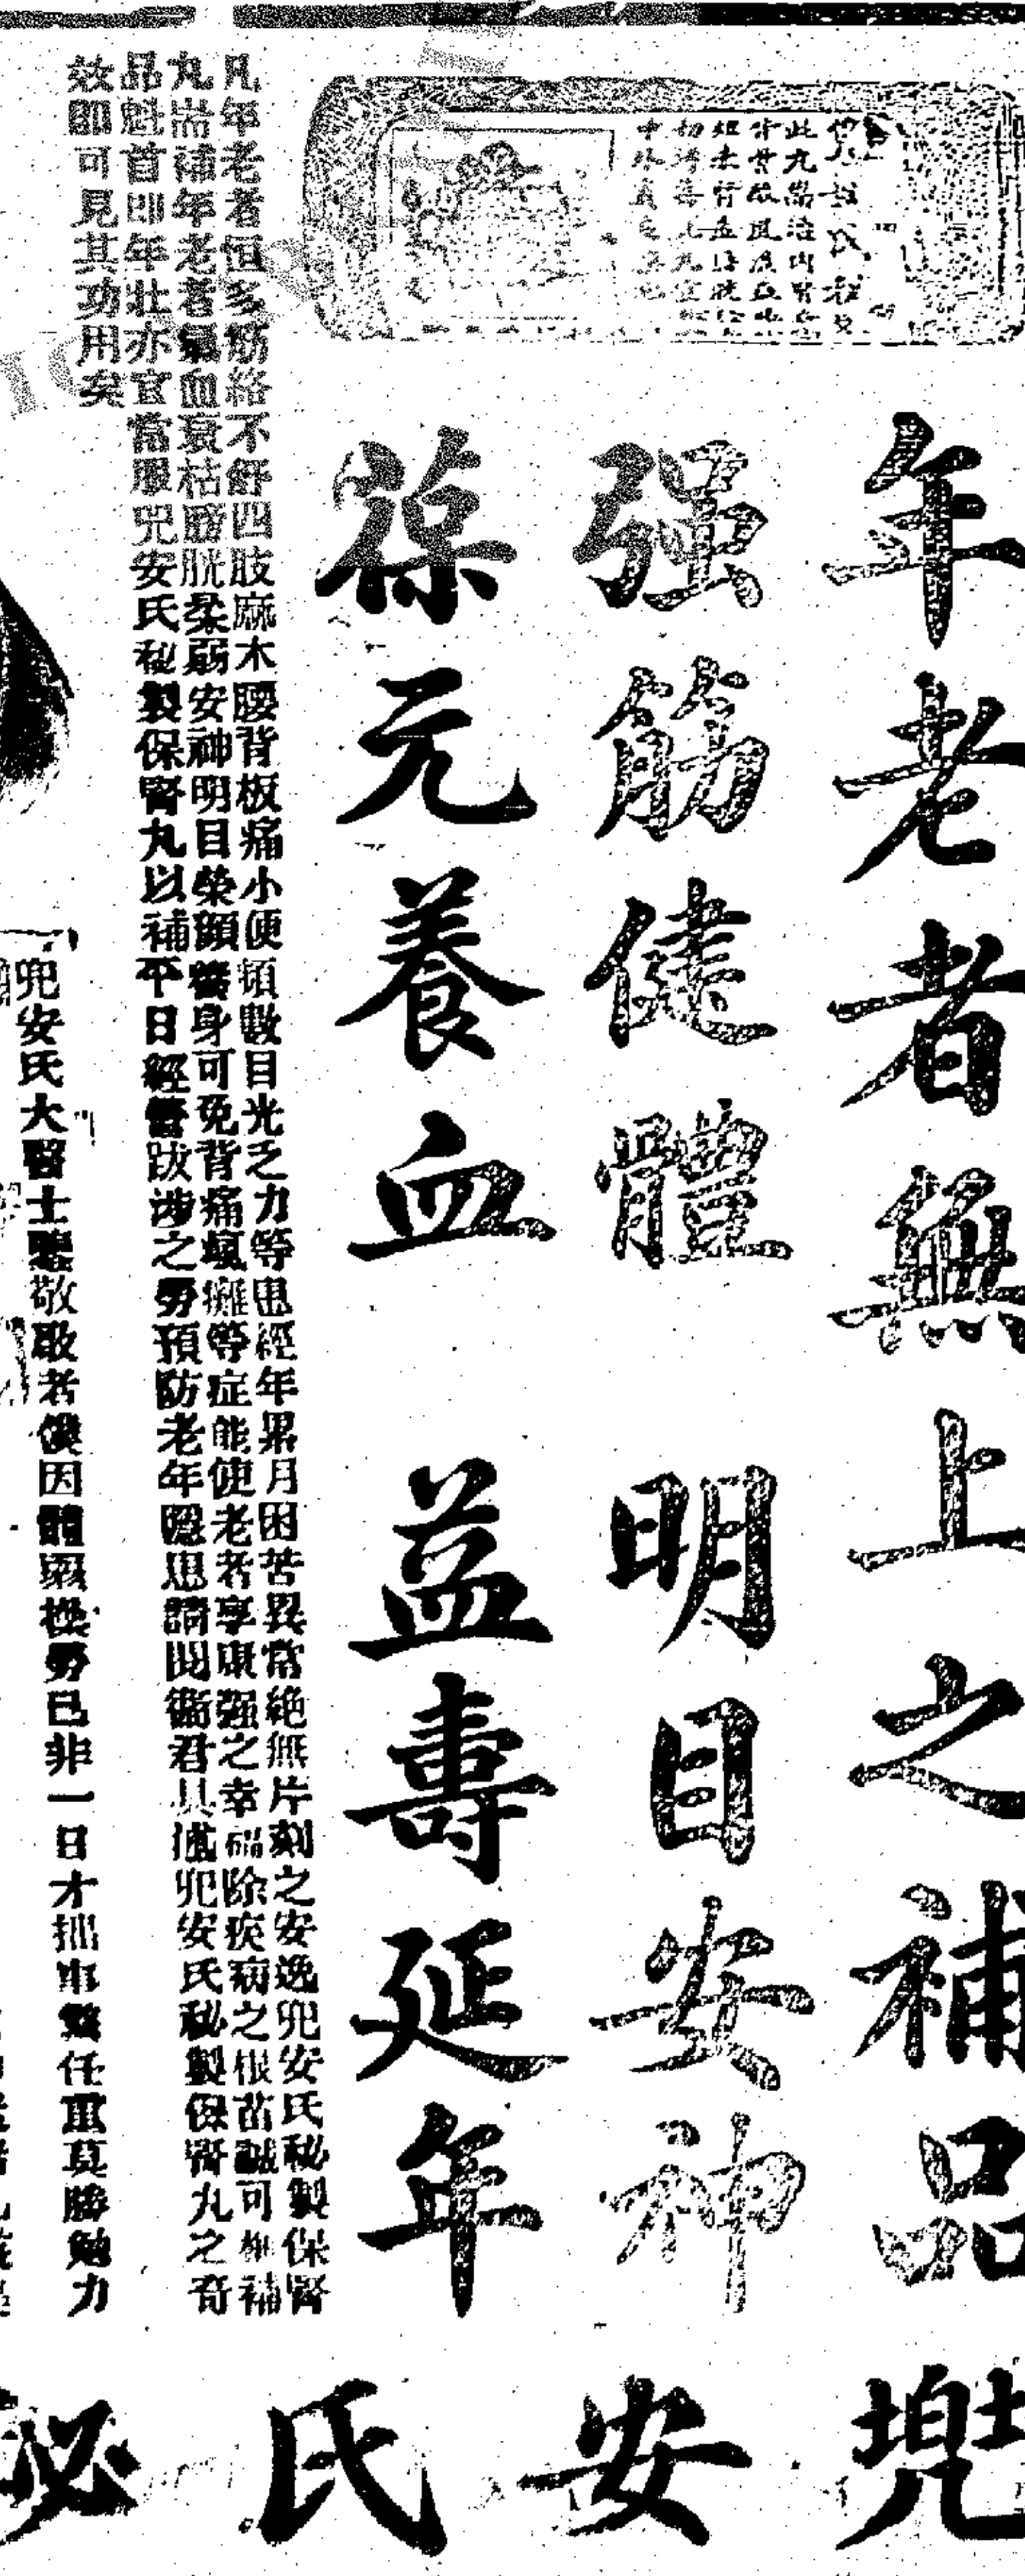 年老者無上之補品
强筋健體 明目安神
葆元養血 益壽延年
凡年老者恒多筋絡不舒四肢麻木腰背板痛小便頻數目光乏力等患經年累月困苦異常絶無片刻之安逸兜安氏秘製保腎
丸耑補年老者氣血衰枯膀胱柔弱安神明目榮顏養身可免背痛瘋癱等症能使老者享康强之幸福除疾病之根苗誠可稱補
品魁首即年壯亦宜當服兜安氏秘製保腎丸以補平日經營跋涉之勞預防老年隱患請閱衛君具述兜安氏秘製保腎丸之奇
效即可見其功用矣
兜安氏大醫士鑒敬啟者僕因體弱操勞已非一日才拙事繁任重莫勝勉力
兜安氏祕